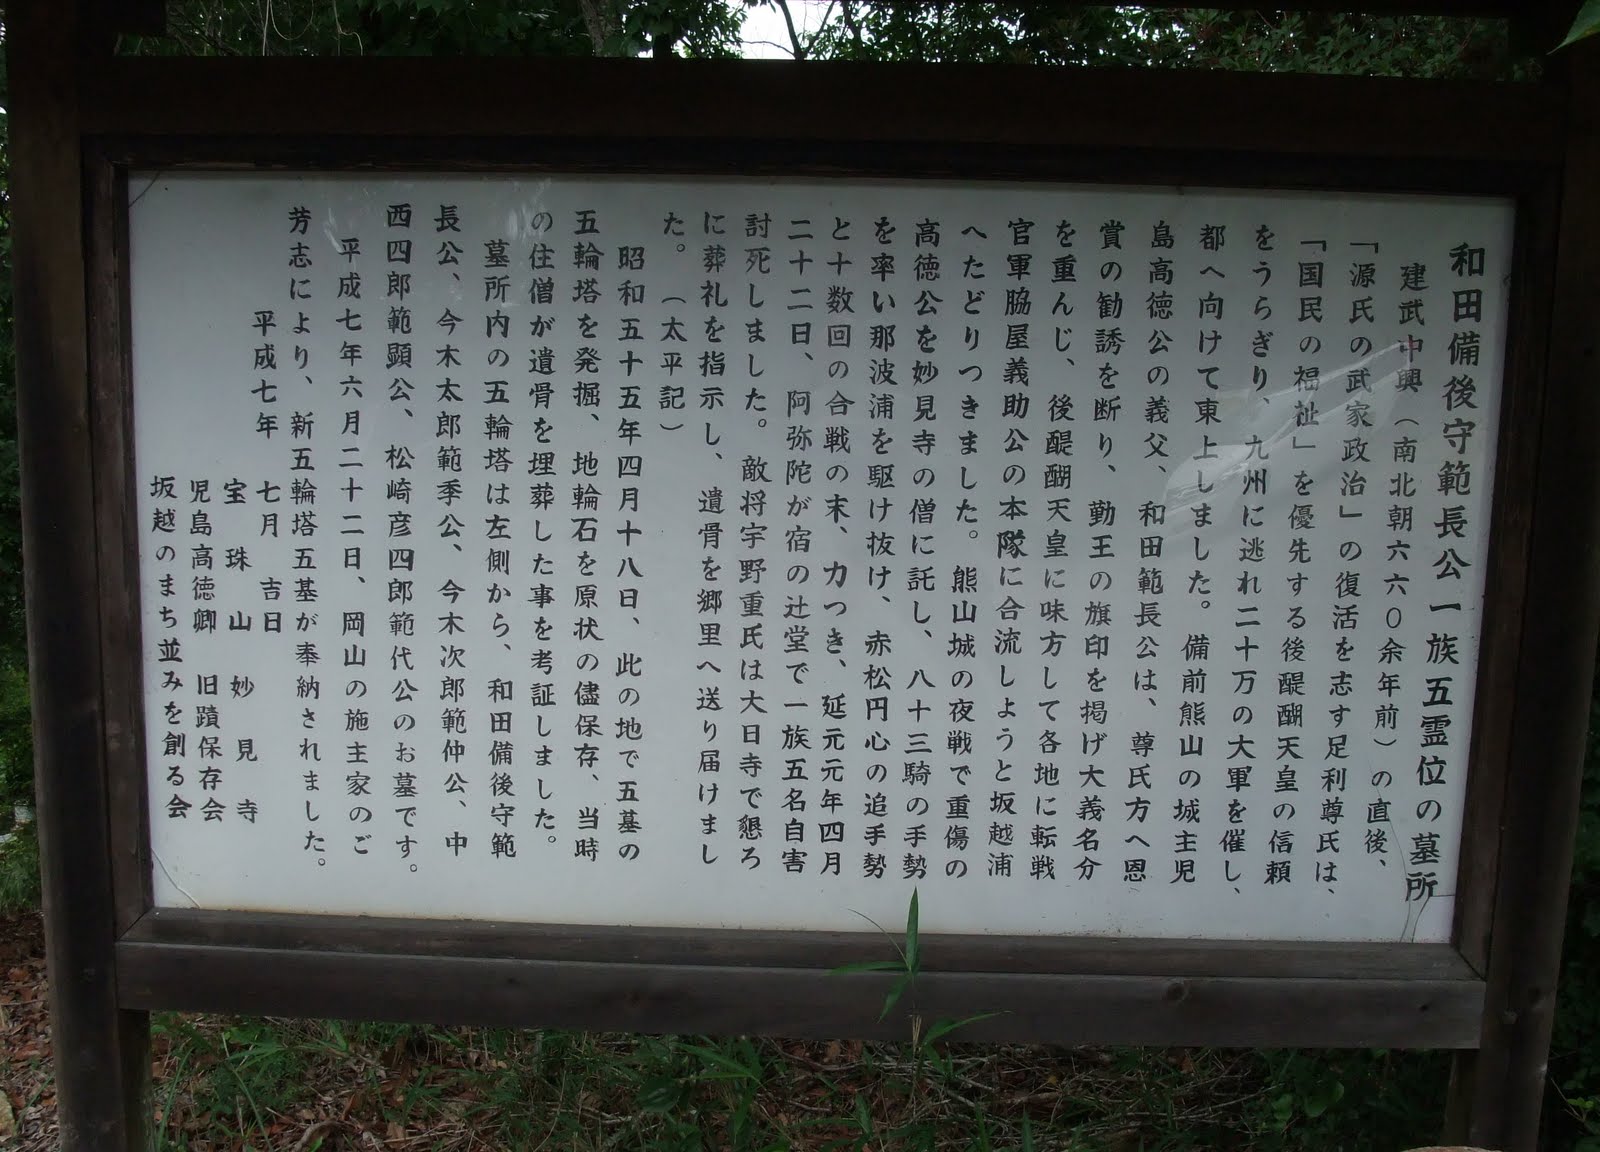 和田備後守範長公一族五霊位の墓所
建武中興（南北朝六六〇余年前）の直後、
「源氏の武家政治」の復活を志す足利尊氏は、
「国民の福祉」を優先する後醍醐天皇の信頼
をうらぎり、九州に逃れ二十万の大軍を催し、
都へ向けて東上しました。備前熊山の城主児
島高徳公の義父、和田範長公は、尊氏方へ恩
賞の勧誘を断り、勤王の旗印を掲げ大義名分
を重んじ、後醍醐天皇に味方して各地に転戦
官軍脇屋義助公の本隊に合流しようと坂越浦
へたどりつきました。熊山城の夜戦で重傷の
高徳公を妙見寺の僧に託し、八十三騎の手勢
を率い那波浦を駆け抜け、赤松円心の追手勢
と十数回の合戦の末、力つき、延元元年四月
二十二日、阿弥陀が宿の辻堂で一族五名自害
討死しました。敵将宇野重氏は大日寺で懇ろ
に葬礼を指示し、遺骨を郷里へ送り届けまし
た。（太平記）
昭和五十五年四月十八日、此の地で五墓の
五輪塔を発掘、地輪石を原状の儘保存、当時
の住僧が遺骨を埋葬した事を考証しました。
墓所内の五輪塔は左側から、和田備後守範
長公、今木太郎範季公、今木次郎範仲公、中
西四郎範顕公、松崎彦四郎範代公のお墓です。
平成七年六月二十二日、岡山の施主家のご
芳志により、新五輪塔五基が奉納されました。
平成七年 七月 吉日
宝珠山 妙見寺
児島高徳卿 旧蹟保存会
坂越のまち並みを創る会